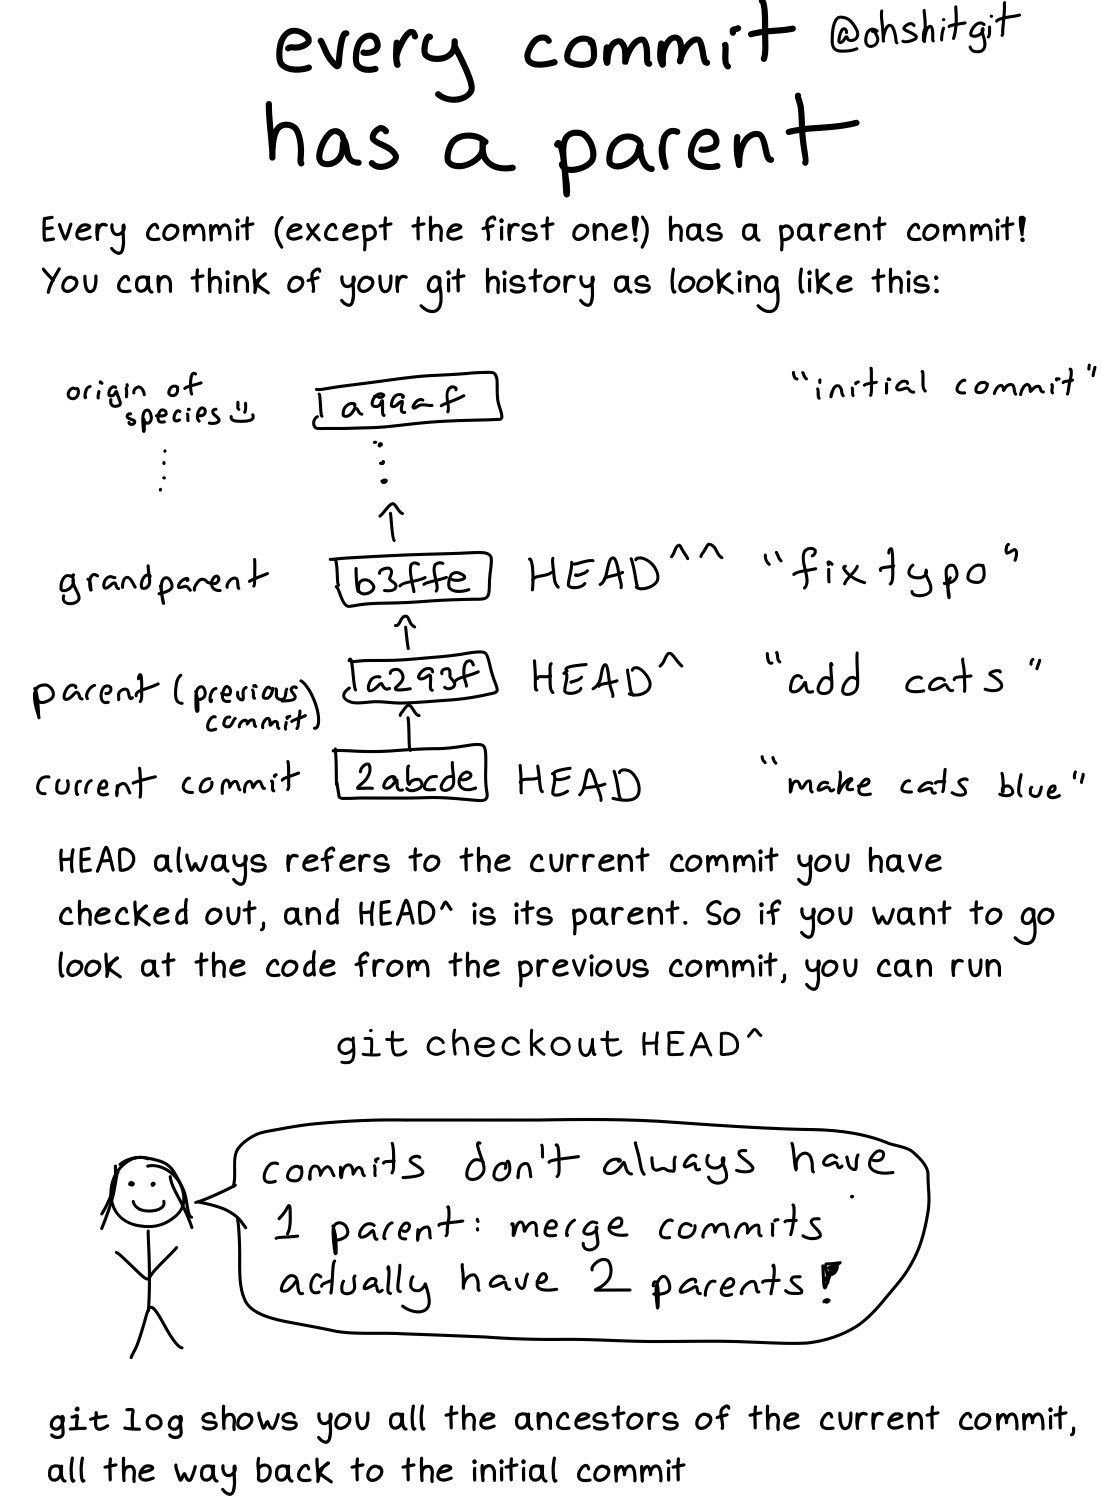 every commit @ohshitgit
has a parent
Every commit (except the first one!) has a parent commit!
You can think of your git history as looking like this:
origin of species a99af "initial commit"
grandparent b3ffe HEAD^^ "fix typo"
parent (previous commit) a293f HEAD^ "add cats"
current commit 2abcde HEAD "make cats blue"
HEAD always refers to the current commit you have
checked out, and HEAD^ is its parent. So if you want to go
look at the code from the previous commit, you can run
git checkout HEAD^
commits don't always have
1 parent: merge commits
actually have 2 parents!
git log shows you all the ancestors of the current commit,
all the way back to the initial commit